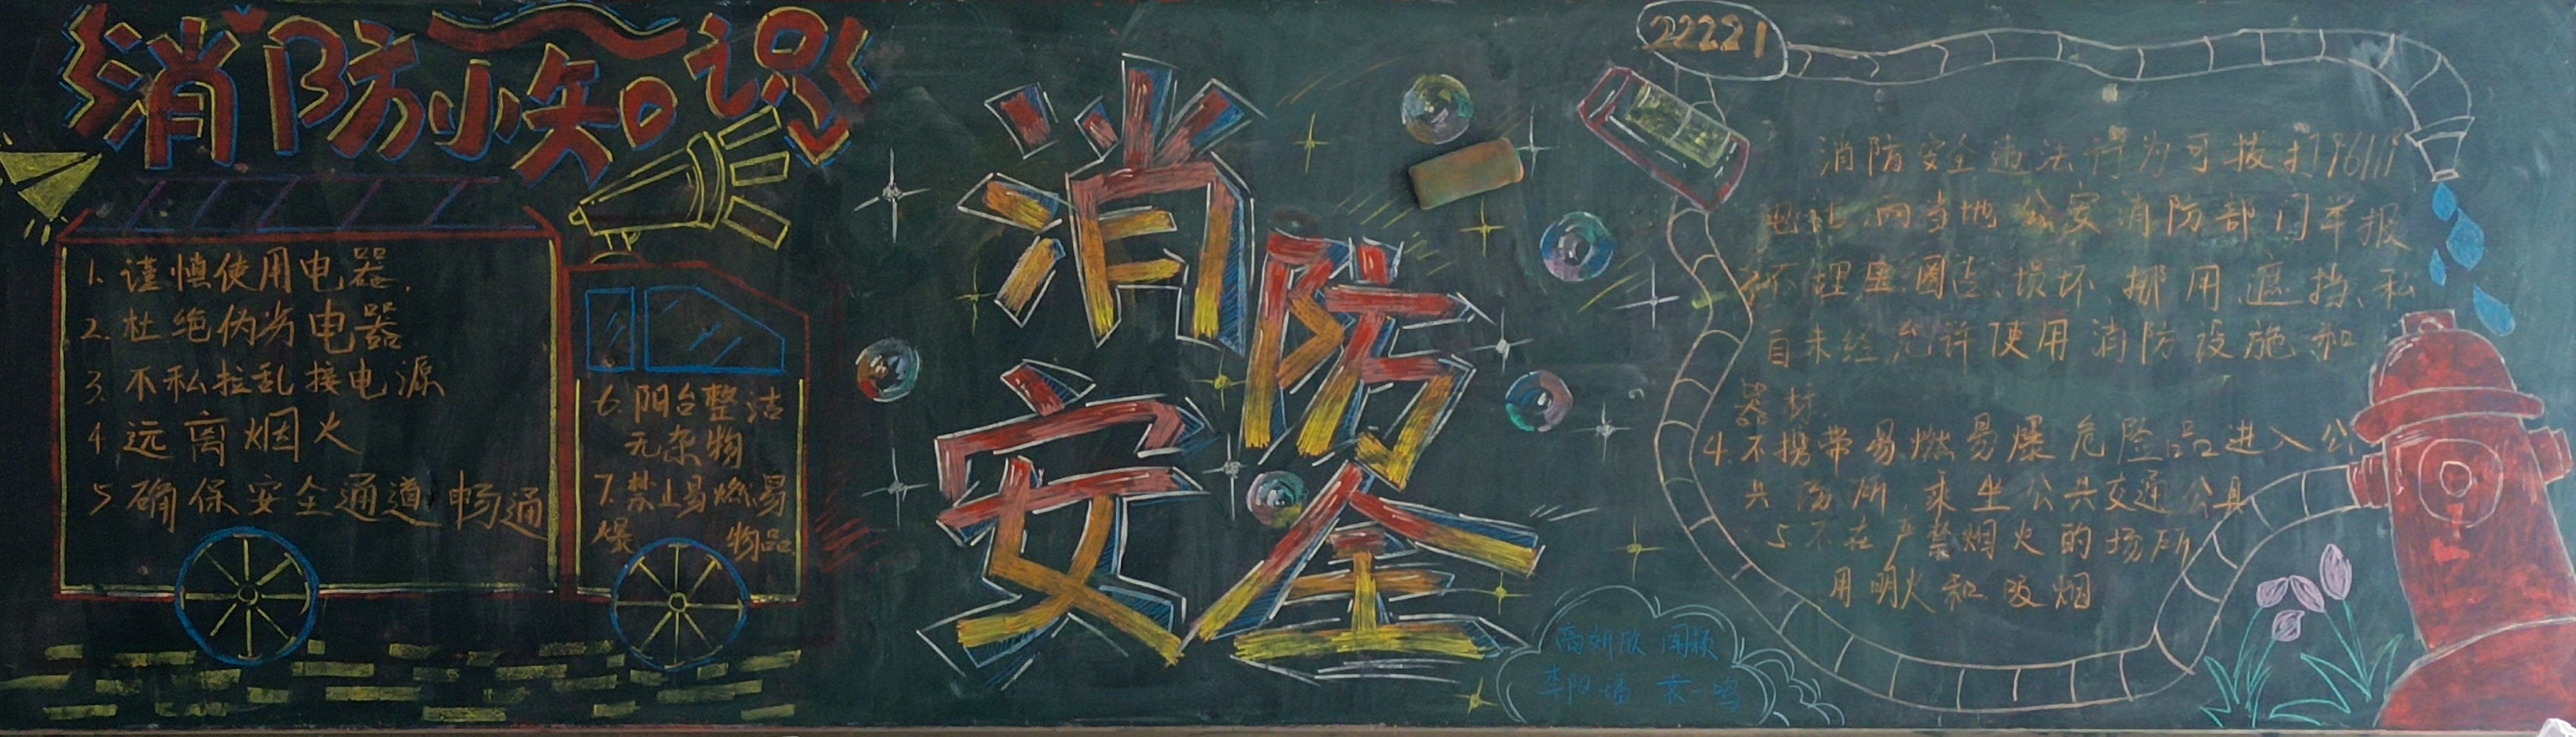 消防小知识
1. 谨慎使用电器.
2. 杜绝伪劣电器
3. 不私拉乱接电源
4 远离烟火
5 确保安全通道畅通
6. 阳台整洁
无杂物
7. 禁止易燃易
爆 物品
消防
安全
22221
消防安全违法行为可拨打96119
电话向当地公安消防部门举报
不埋压圈占、损坏、挪用、遮挡、私
自未经允许使用消防设施和
器材
4. 不携带易燃易爆危险品进入公
共场所 乘坐公共交通工具
5. 不在严禁烟火的场所
用明火和吸烟
袁一鸣